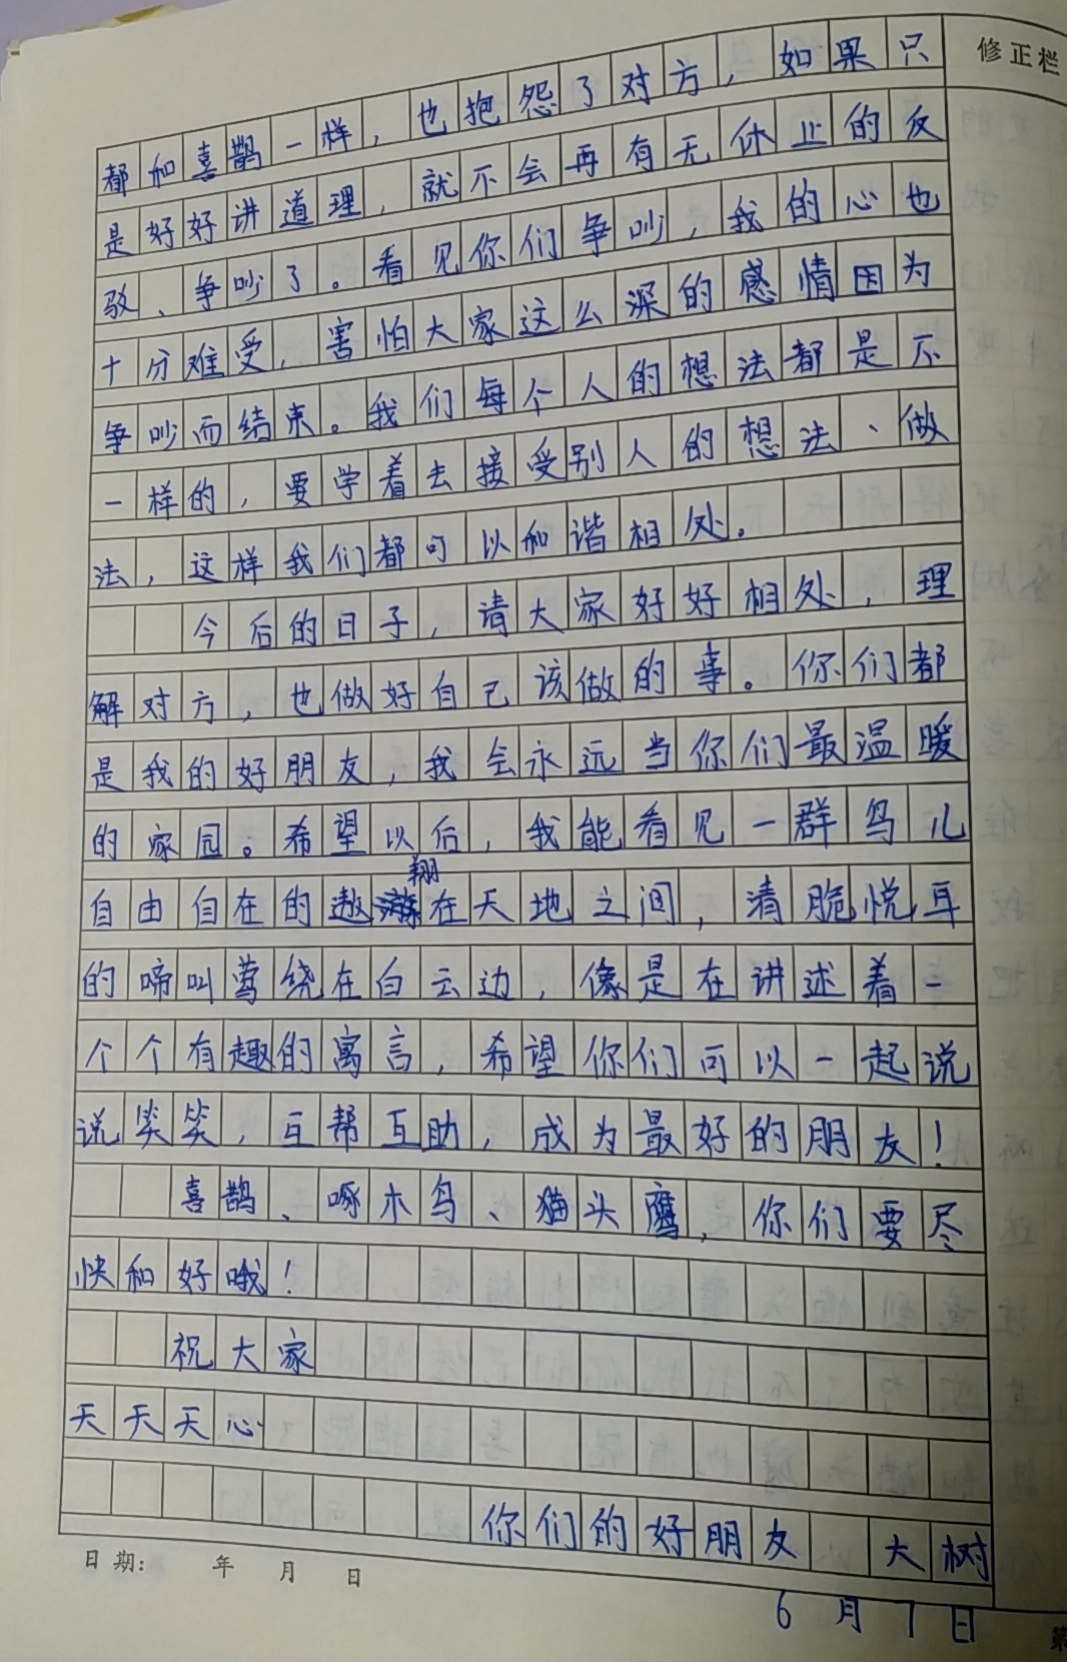 修正栏
都和喜鹊一样，也抱怨了对方，如果只
是好好讲道理，就不会再有无休止的反
驳、争吵了。看见你们争吵，我的心也
十分难受，害怕大家这么深的感情因为
争吵而结束。我们每个人的想法都是不
一样的，要学着去接受别人的想法、做
法，这样我们都可以和谐相处。
今后的日子，请大家好好相处，理
解对方，也做好自己该做的事。你们都
是我的好朋友，我会永远当你们最温暖
的家园。希望以后，我能看见一群鸟儿
自由自在的遨翔在天地之间，清脆悦耳
的啼叫莺绕在白云边，像是在讲述着一
个个有趣的寓言，希望你们可以一起说
说笑笑，互帮互助，成为最好的朋友！
喜鹊、啄木鸟、猫头鹰，你们要尽
快和好哦！
祝大家
天天天心
你们的好朋友 大树
日期： 年 月 日
6月7日
第